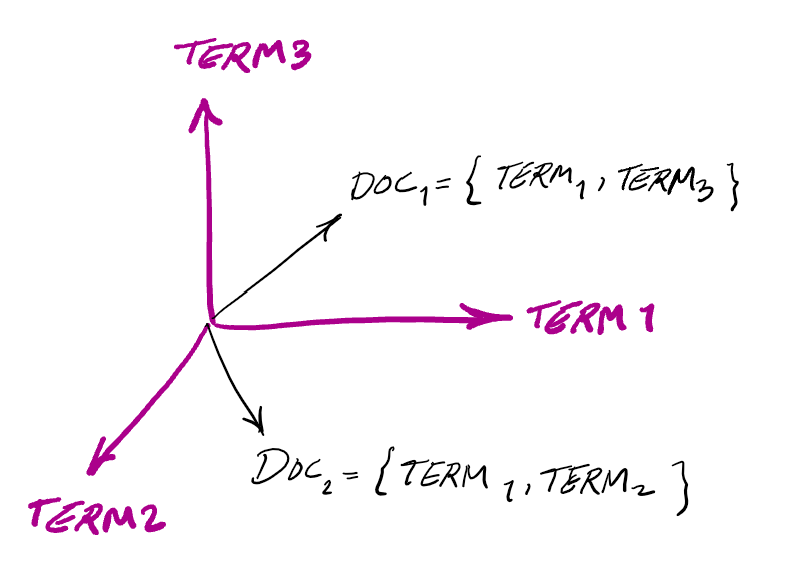 TERM3
DOC₁ = { TERM₁, TERM₃ }
TERM 1
DOC₂ = { TERM₁, TERM₂ }
TERM2